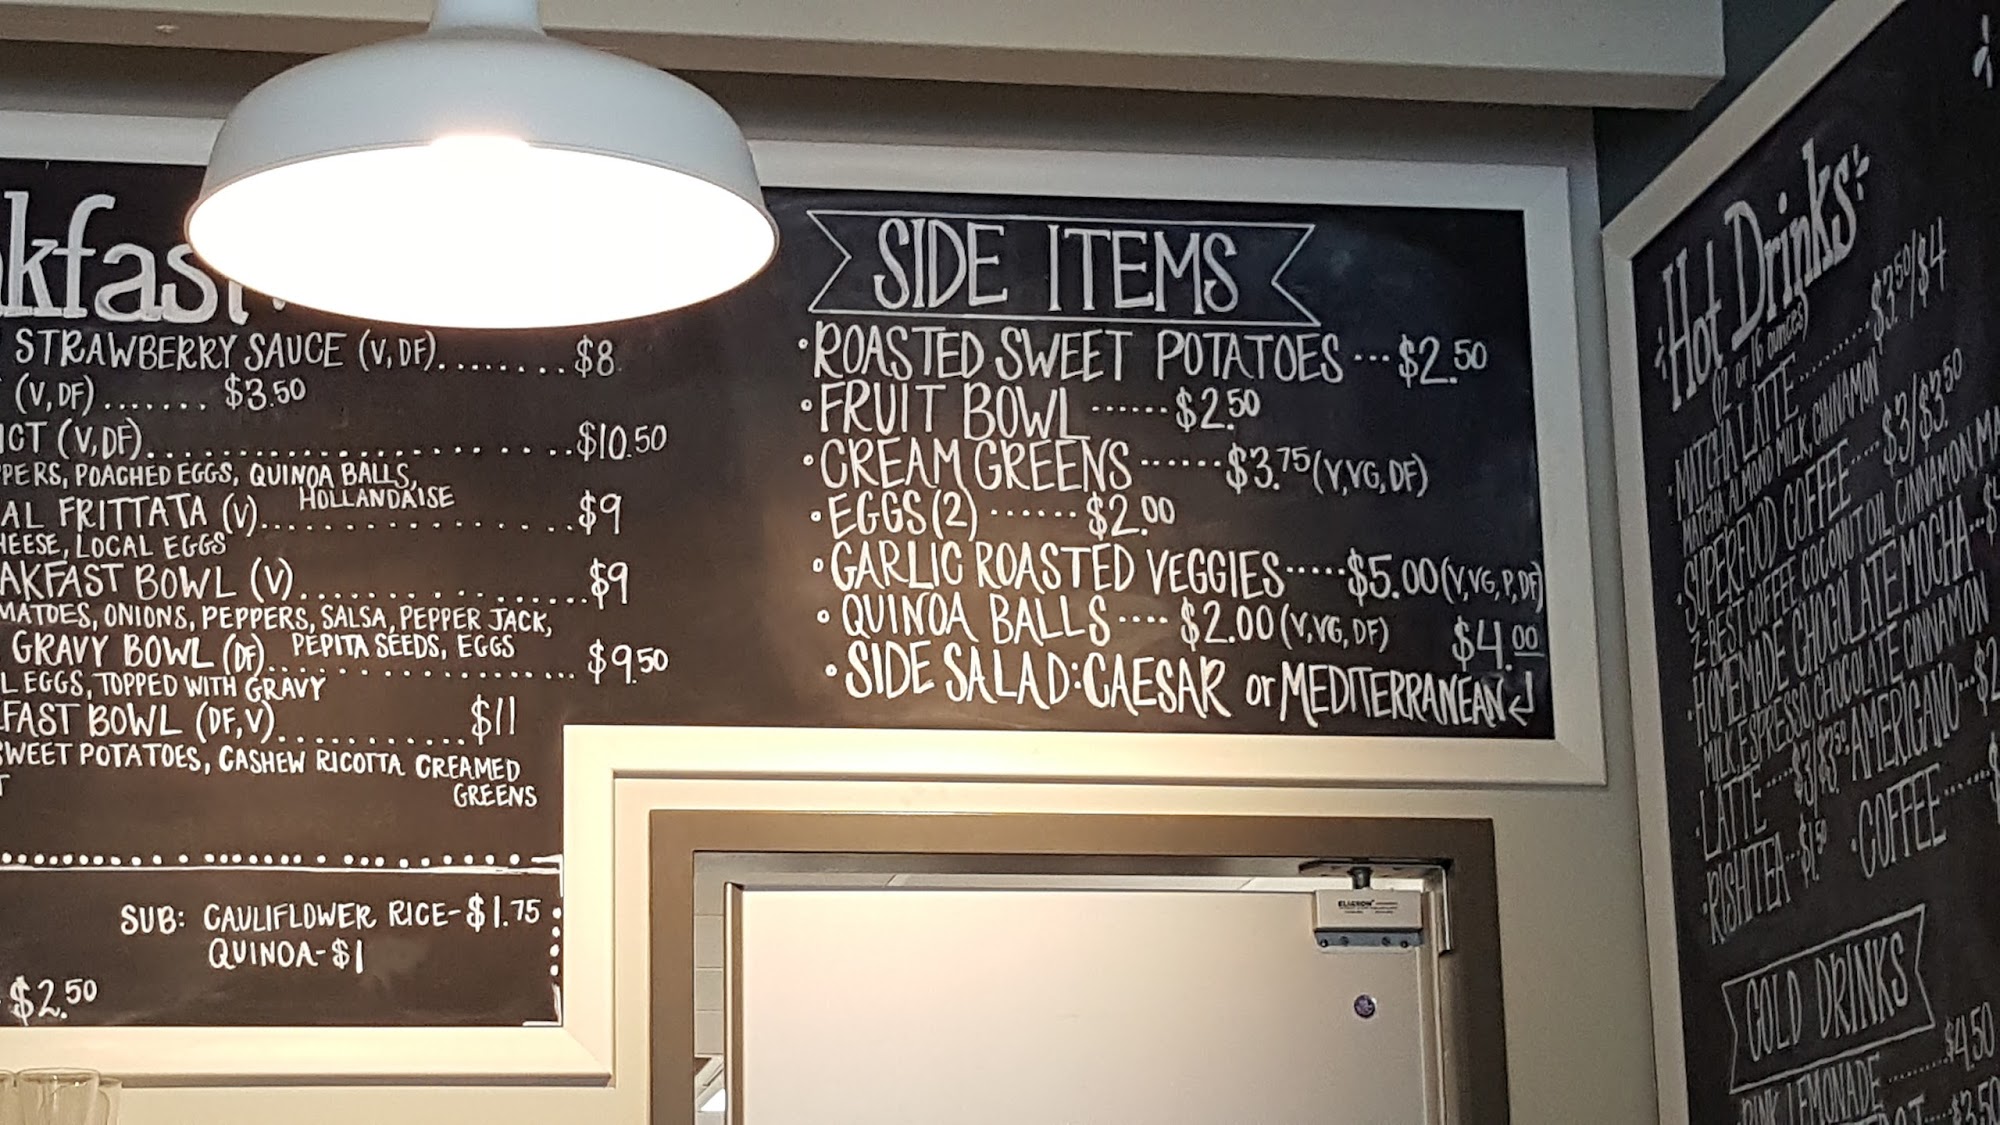 STRAWBERRY SAUCE (V, DF)........$8
(V, DF).......$3.50
(V, DF)..............................$10.50
POACHED EGGS, QUINOA BALLS,
HOLLANDAISE
FRITTATA (V)....................$9
LOCAL EGGS
BOWL (V)....................$9
ONIONS, PEPPERS, SALSA, PEPPER JACK,
PEPITA SEEDS, EGGS
GRAVY BOWL (DF)....................$9.50
EGGS, TOPPED WITH GRAVY
BOWL (DF, V)............$11
SWEET POTATOES, CASHEW RICOTTA CREAMED
GREENS
SUB: CAULIFLOWER RICE-$1.75
QUINOA-$1
$2.50
SIDE ITEMS
•ROASTED SWEET POTATOES...$2.50
•FRUIT BOWL......$2.50
•CREAM GREENS......$3.75(V,VG,DF)
•EGGS(2)......$2.00
•GARLIC ROASTED VEGGIES.....$5.00(V,VG,P,DF)
•QUINOA BALLS....$2.00(V,VG,DF)
$4.00
•SIDE SALAD:CAESAR or MEDITERRANEAN
Hot Drinks
(12 or 16 ounces)
•MATCHA LATTE.........$3.50/$4
MATCHA, ALMOND MILK, CINNAMON
•SUPERFOOD COFFEE.....$3/$3.50
Z-BEST COFFEE COCONUT OIL, CINNAMON,
•HOMEMADE CHOCOLATE MOCHA...
MILK, ESPRESSO, CHOCOLATE CINNAMON
•LATTE....$3/$3.50 •AMERICANO...
•RISHITEA...$1.50 •COFFEE.....
COLD DRINKS
PINK LEMONADE......$4.50
$3.50